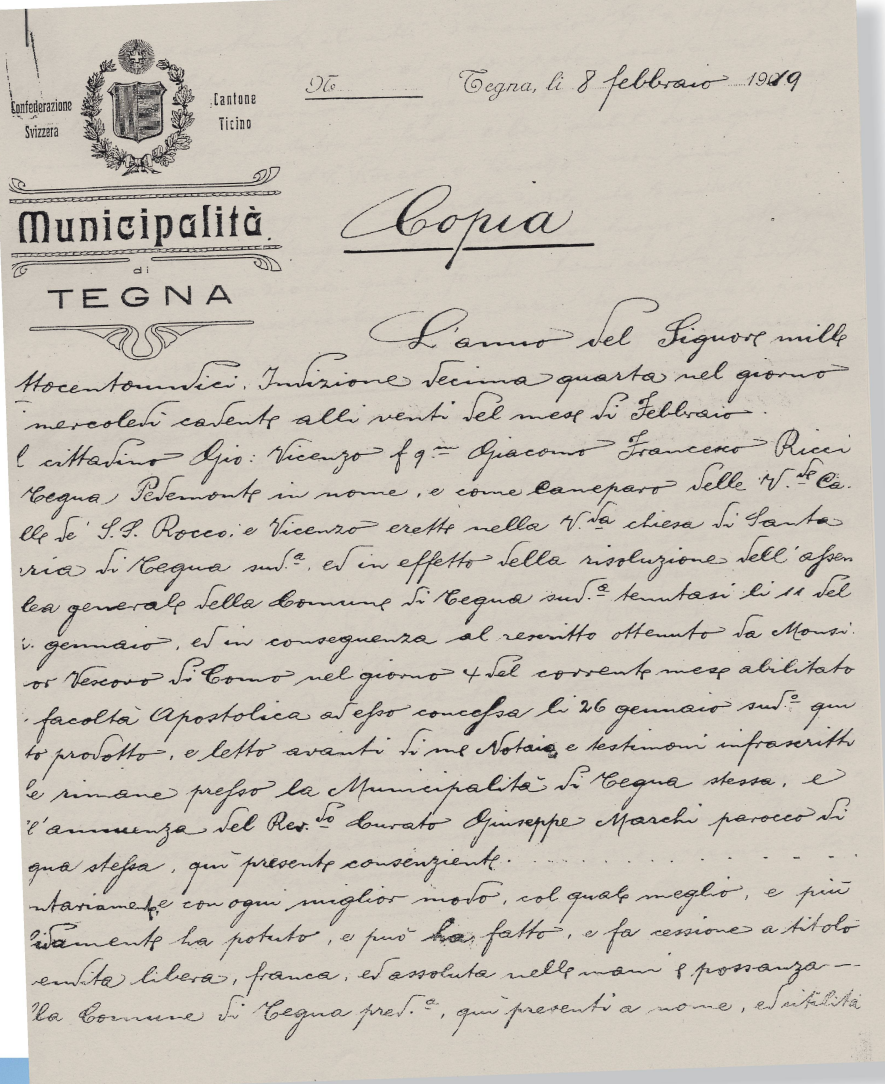 Confederazione
Svizzera
Cantone
Ticino
Municipalità
di
TEGNA
No
Tegna, li 8 febbraio 1919
Copia
L'anno del Signore mille
ttocentoundici. Indizione decima quarta nel giorno
mercoledì cadente alli venti del mese di Febbraio.
l cittadino Gio: Vicenzo f qm Giacomo Francesco Ricci
Tegna Pedemonte in nome, e come caneparo delle V.de Ca.
lle de' S.S. Rocco, e Vicenzo erette nella V.da chiesa di Santa
ria di Tegna sud.a, ed in effetto della risoluzione dell'assem
lea generale della Comune di Tegna sud.a tenutasi li 11 del
gennaio, ed in conseguenza al rescritto ottenuto da Monsi.
or Vescovo di Como nel giorno 4 del corrente mese abilitato
facoltà Apostolica ad esso concessa li 26 gennaio sud.o qui
to prodotto, e letto avanti di me Notaio, e testimoni infrascritti
e rimane presso la Municipalità di Tegna stessa, e
l'annuenza del Rev.do Curato Giuseppe Marchi parocco di
gna stessa, qui presente consenziente.
ntariamente, e con ogni miglior modo, col quale meglio, e più
idamente ha potuto, e può ha fatto, e fa cessione a titolo
endita libera, franca, ed assoluta nelle mani e possanza —
lla Comune di Tegna pred.a, qui presenti a nome, ed utilità